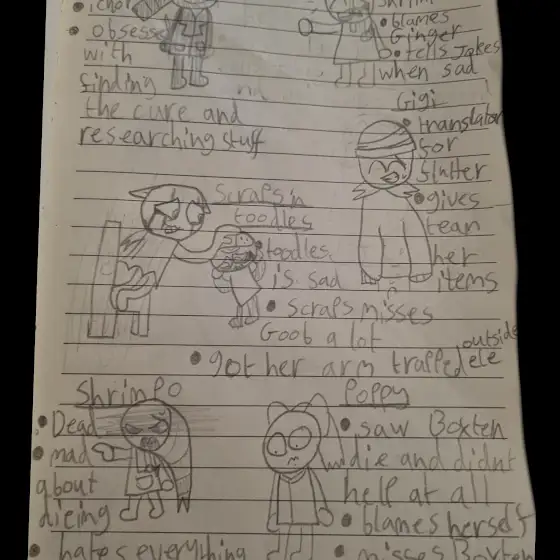 ichor
shrimp
obsesse
with
finding
the cure and
researching stuff
blames
Ginger
tells Jokes
when sad
Gigi
translator
for
slutter
gives
tean
her
items
Scraps 'n
toodles
toodles
is sad
scraps misses
Goob a lot
got her arm trapped outside
ele
Shrimpo
Dead
mad
about
dieing
hates everything
Poppy
saw Boxten
die and didnt
help at all
blames herself
misses Boxten